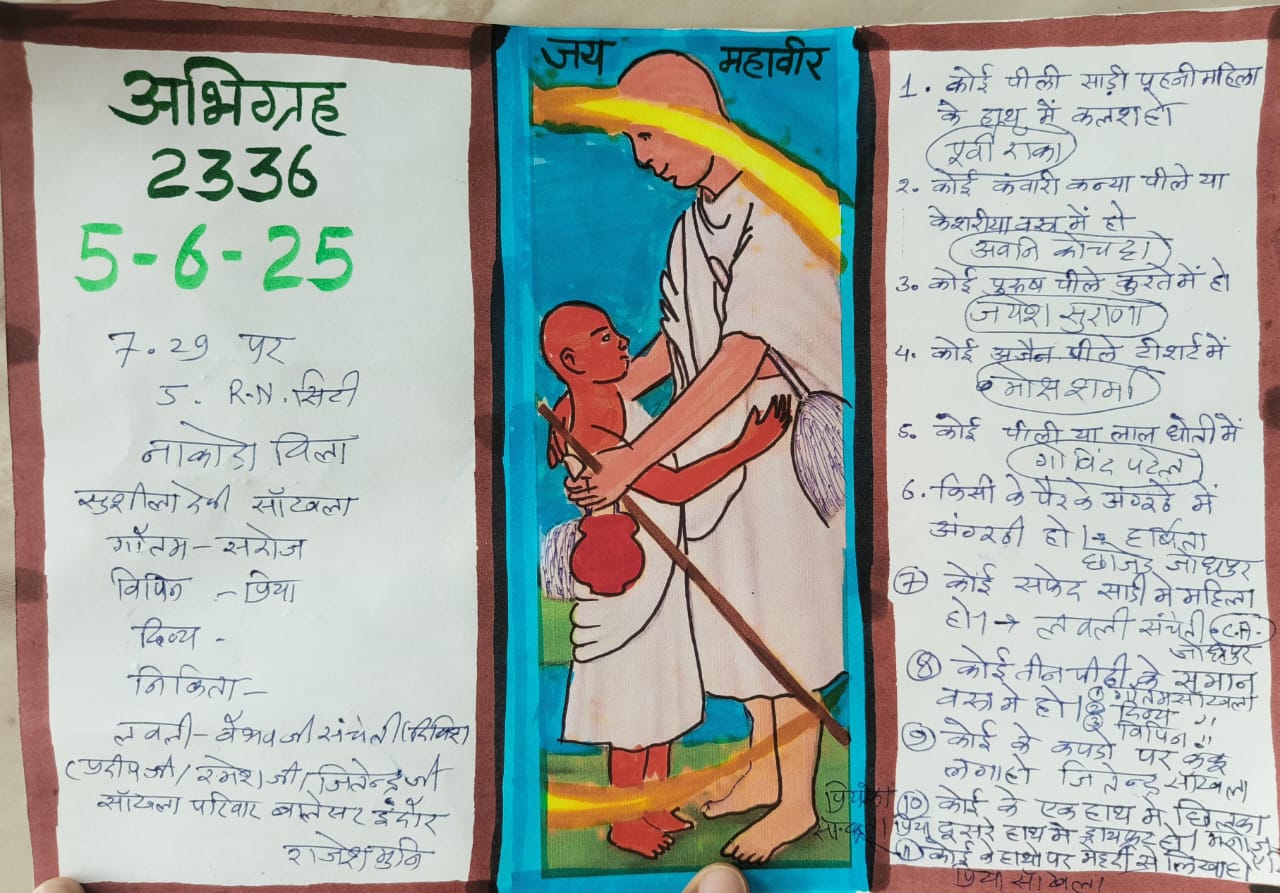 अभिग्रह
2336
5-6-25
7.29 पर
J. R.N. सिटी
नाकोडा विला
सुशीला देवी साँखला
गौतम - सरोज
विपिन - प्रिया
दिव्य -
निकिता -
लवली - वैभव जी संचेती
प्रदीप जी / रमेश जी / जितेन्द्र जी
साँखला परिवार बालेसर इंदौर
राजेश मुनि
जय महावीर
1. कोई पीली साड़ी पहनी महिला
के हाथ में कलश हो
पूर्वी राका
2. कोई कंवारी कन्या पीले या
केशरीया वस्त्र में हो
अवनि कोचट्टा
3. कोई पुरुष पीले कुरते में हो
जयेश सुराणा
4. कोई अजैन पीले टीशर्ट में
शर्मा
5. कोई पीली या लाल धोती में
गोविंद पटेल
6. किसी के पैर के अंगूठे में
अंगूठी हो। → हर्षिता
छाजेड़ जोधपुर
7 कोई सफेद साडी मे महिला
हो। → लवली संचेती C.A.
जोधपुर
8 कोई तीन पीढी के समान
वस्त्र मे हो। 1 गौतम साँखला
2 दिव्य "
3 विपिन "
9 कोई के कपडो पर कंकू
लगा हो जितेन्द्र साँखला
10 कोई के एक हाथ मे छिलका
दूसरे हाथ मे ड्रायफ्रूट हो।
प्रियंका
11 कोई के हाथो पर महेंदी से लिखा हो
प्रिया साँखला